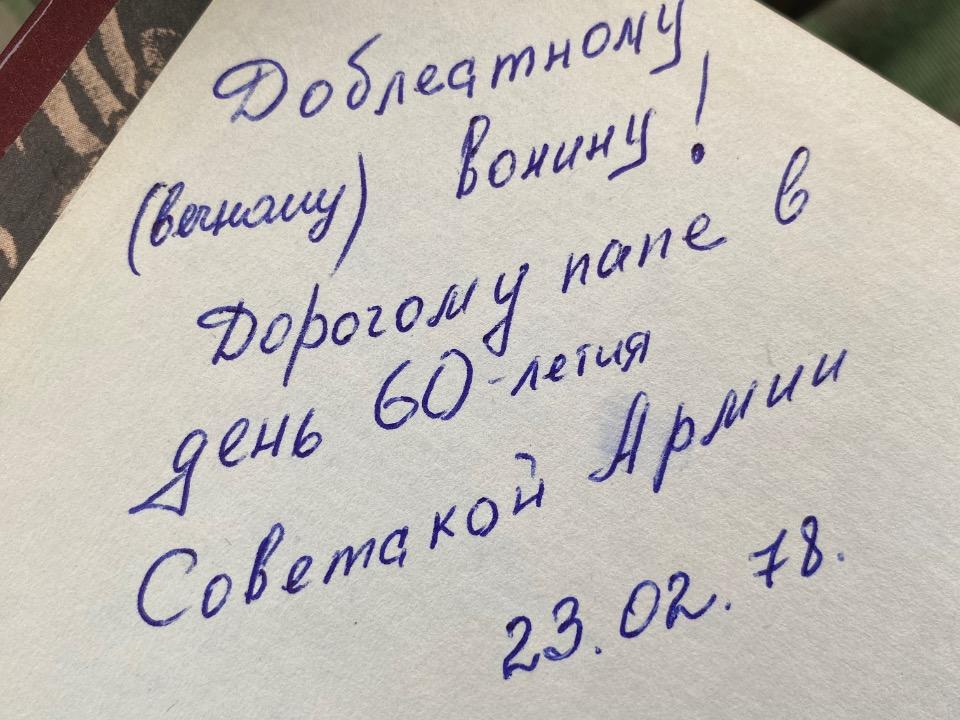 Доблестному
(вечному) воину!
Дорогому папе в
день 60-летия
Советской Армии
23.02.78.